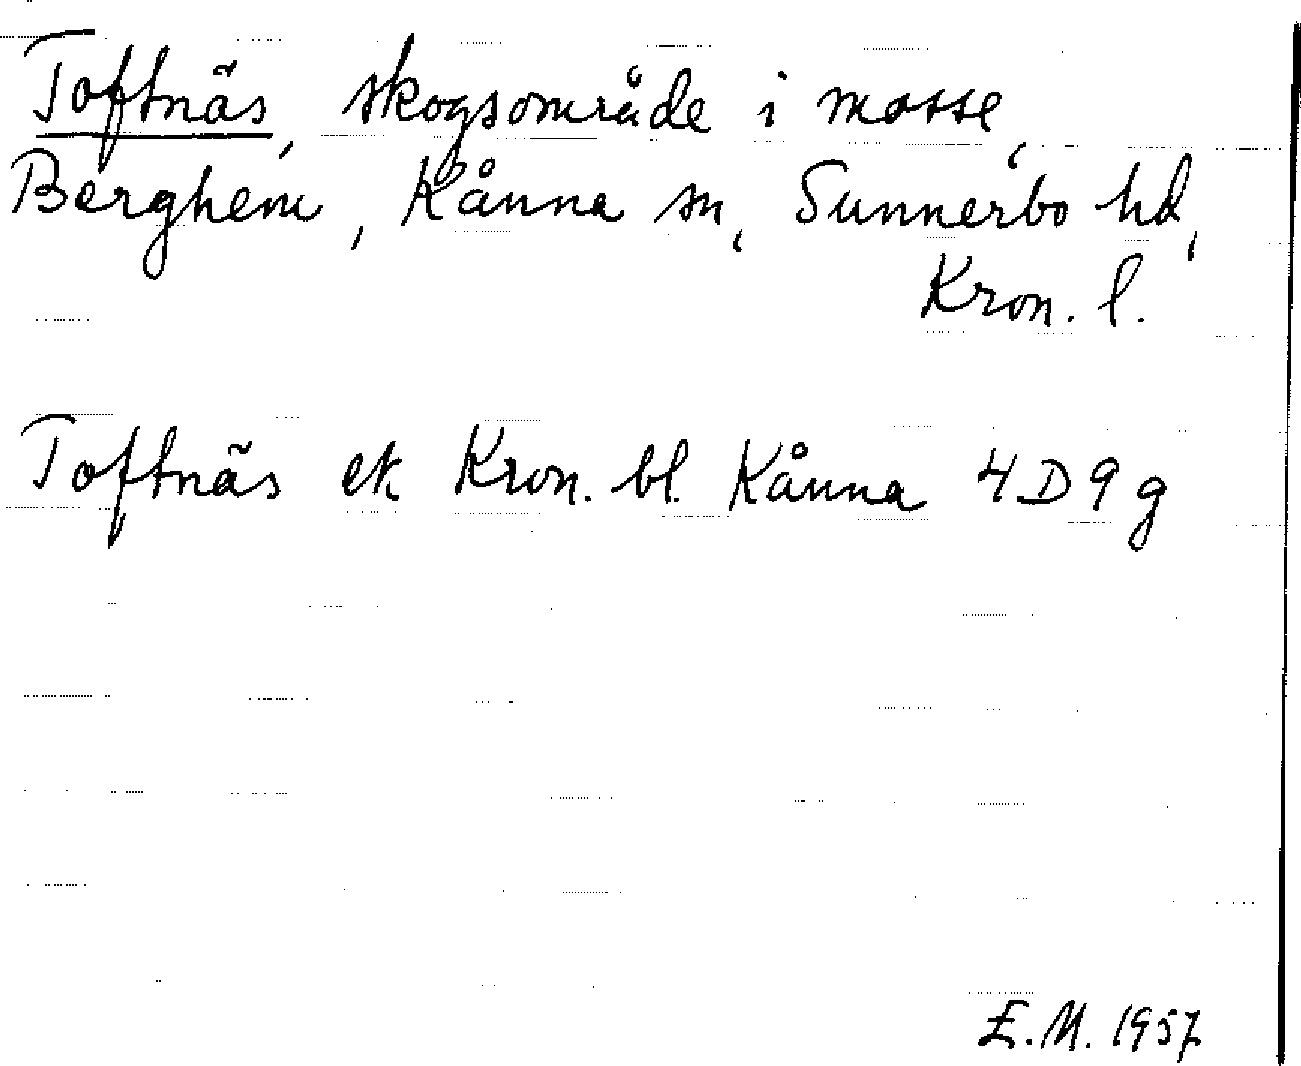 Toftnäs, skogsområde i mosse,
Berghem, Kånna sn, Sunnerbo hd,
Kron. l.
Toftnäs ek Kron. bl. Kånna 4D9g
E.M. 1957